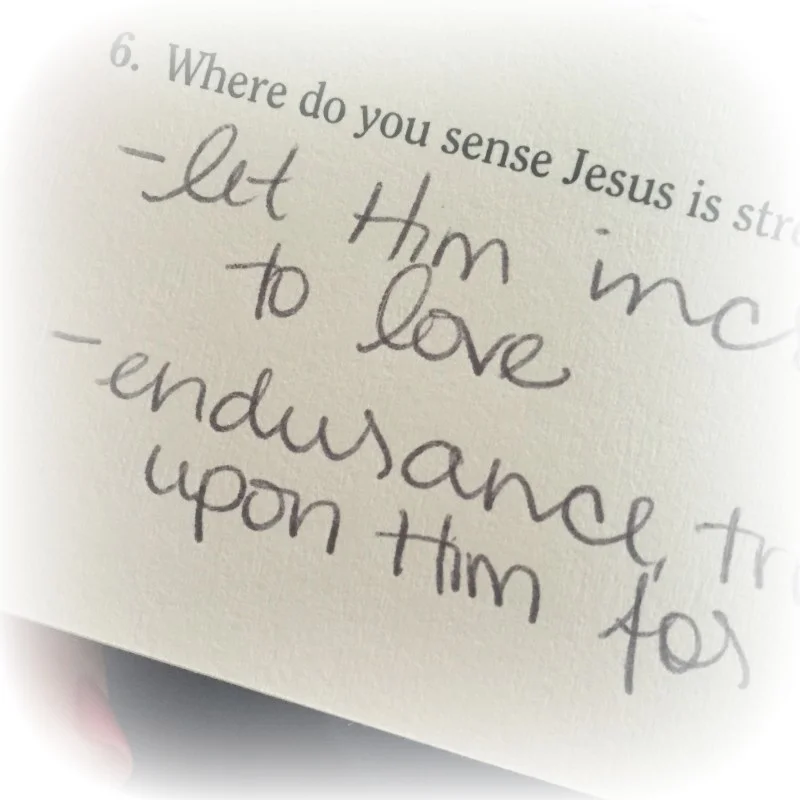 6. Where do you sense Jesus is stre
- let Him inc
to love
- endurance, tr
upon Him for